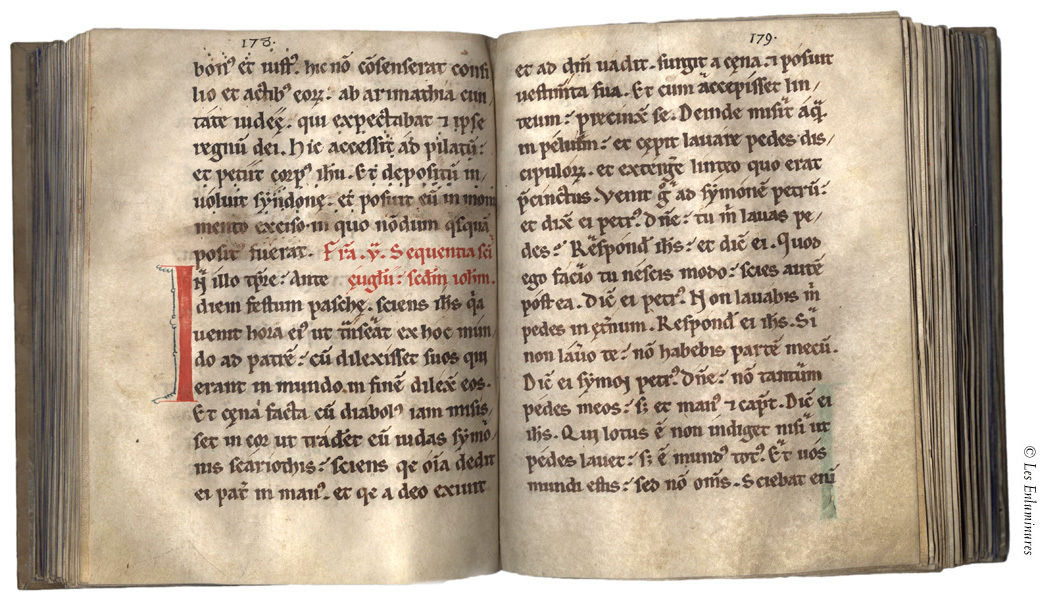 178.
bon᷒ et iust᷒. hic nō cōsenserat consi
lio et actib᷒ eoꝝ. ab arimathia ciui
tate iudeę. qui expectabat ⁊ ipse
regnū dei. Hic accessit ad pilatū:
et petiit corp᷒ ihu. Et depositū in/
uoluit syndone. et posuit eū in moni
mento exciso. in quo nōdum q̄squā
posit᷒ fuerat. Fr̄a. v̄. Sequentia sc̄i
In illo tp̄re: Ante ęuglii: scdm iohm.
diem festum paschę. sciens ihs q̄a
uenit hora ei᷒ ut t̄nseat ex hoc mun/
do ad patrē: cū dilexisset suos qui
erant in mundo. in finē dilex̄ eos.
Et cęna facta cū diabol᷒ iam misis/
set in cor ut tradet eū iudas symo/
nis scariothis: sciens qȩ om̄ia dedit
ei pat̄ in man᷒. et qȩ a deo exiuit
179.
et ad dm̄ uadit. surgit a cęna. ⁊ posuit
uestim̄ta sua. Et cum accepisset lin/
teum: precinx̄ se. Deinde misit aq̄
in peluim: et cępit lauare pedes dis/
cipuloꝝ. et exterge linteo quo erat
p̄cinctus. Venit g̊ ad symonē petrū:
et dix̄ ei petr᷒. Dn̄e: tu m̄ lauas pe/
des: Respond̄ ihs: et dic̄ ei. Quod
ego facio tu nescis modo: scies autē
postea. Dic̄ ei petr᷒. Non lauabis m̄
pedes in ęt̄num. Respond̄ ei ihs. Si
non lauo te: nō habebis partē mecū.
Dic̄ ei symon petr᷒. Dn̄e: nō tantum
pedes meos: sꝫ et man᷒ ⁊ capt̄. Dic̄ ei
ihs. Qui lotus ē non indiget nisi ut
pedes lauet: sꝫ ē mund᷒ tot᷒. Et uos
mundi estis: sed nō om̄s. Sciebat eni̅
© Les Enluminures